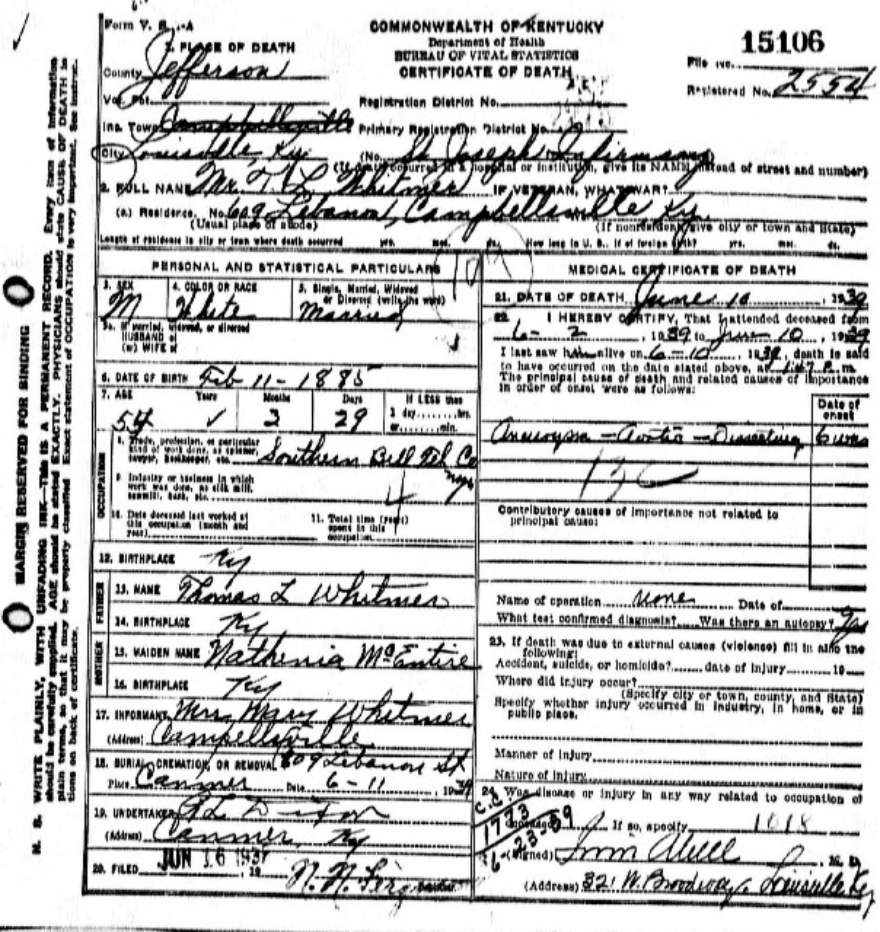 Form V. S. 1-A
COMMONWEALTH OF KENTUCKY
Department of Health
BUREAU OF VITAL STATISTICS
CERTIFICATE OF DEATH
15106
File No.
Registered No. 2554
1. PLACE OF DEATH
County Jefferson
Vot. Pct.
Registration District No.
Inc. Town Campbellsville
Primary Registration District No.
City Louisville, Ky.
(No. St Joseph Infirmary
(If death occurred in a hospital or institution, give its NAME instead of street and number)
2. FULL NAME Mr. T. L. Whitmer IF VETERAN, WHAT WAR?
(a) Residence. No. 609 Lebanon, Campbellsville, Ky.
(Usual place of abode) (If nonresident give city or town and State)
Length of residence in city or town where death occurred yrs. mos. ds. How long in U. S., if of foreign birth? yrs. mos. ds.
PERSONAL AND STATISTICAL PARTICULARS
3. SEX M
4. COLOR OR RACE White
5. Single, Married, Widowed or Divorced (write the word) Married
5a. If married, widowed, or divorced
HUSBAND of
(or) WIFE of
6. DATE OF BIRTH Feb 11 - 1885
7. AGE Years Months Days If LESS than
54 3 29 1 day hrs.
or min.
OCCUPATION
8. Trade, profession, or particular kind of work done, as spinner, sawyer, bookkeeper, etc. Southern Bell Tel Co
9. Industry or business in which work was done, as silk mill, sawmill, bank, etc.
10. Date deceased last worked at this occupation (month and year)
11. Total time (years) spent in this occupation
12. BIRTHPLACE Ky
FATHER
13. NAME Thomas L Whitmer
14. BIRTHPLACE Ky
MOTHER
15. MAIDEN NAME Nathenia McEntire
16. BIRTHPLACE Ky
17. INFORMANT Mrs Mary Whitmer
(Address) Campellsville
609 Lebanon St.
18. BURIAL, CREMATION, OR REMOVAL
Place Canmer Date 6-11, 1939
19. UNDERTAKER Dixon
(Address) Canmer, Ky
20. FILED JUN 16 1939, 19
MEDICAL CERTIFICATE OF DEATH
21. DATE OF DEATH June 10, 1939
22. I HEREBY CERTIFY, That I attended deceased from
6-2, 1939 to June 10, 1939
I last saw him alive on 6-10, 1939, death is said
to have occurred on the date stated above, at 1:47 P.m.
The principal cause of death and related causes of importance
in order of onset were as follows:
Date of onset
Aneurysm - Aortic - Dissecting 6 wks
Contributory causes of importance not related to
principal cause:
Name of operation none Date of
What test confirmed diagnosis? Was there an autopsy? Yes
23. If death was due to external causes (violence) fill in also the
following:
Accident, suicide, or homicide? date of injury 19
Where did injury occur?
(Specify city or town, county, and State)
Specify whether injury occurred in industry, in home, or in
public place.
Manner of injury
Nature of injury
24. Was disease or injury in any way related to occupation of
deceased? If so, specify 1018
C.C.
1773
6-23-39
(Signed) M. D.
(Address) 321 W. Broadway. Louisville Ky
MARGIN RESERVED FOR BINDING
N. B. WRITE PLAINLY, WITH UNFADING INK—THIS IS A PERMANENT RECORD. Every item of information
should be carefully supplied. AGE should be stated EXACTLY. PHYSICIANS should state CAUSE OF DEATH in
plain terms, so that it may be properly classified. Exact statement of OCCUPATION is very important. See instruc-
tions on back of certificate.